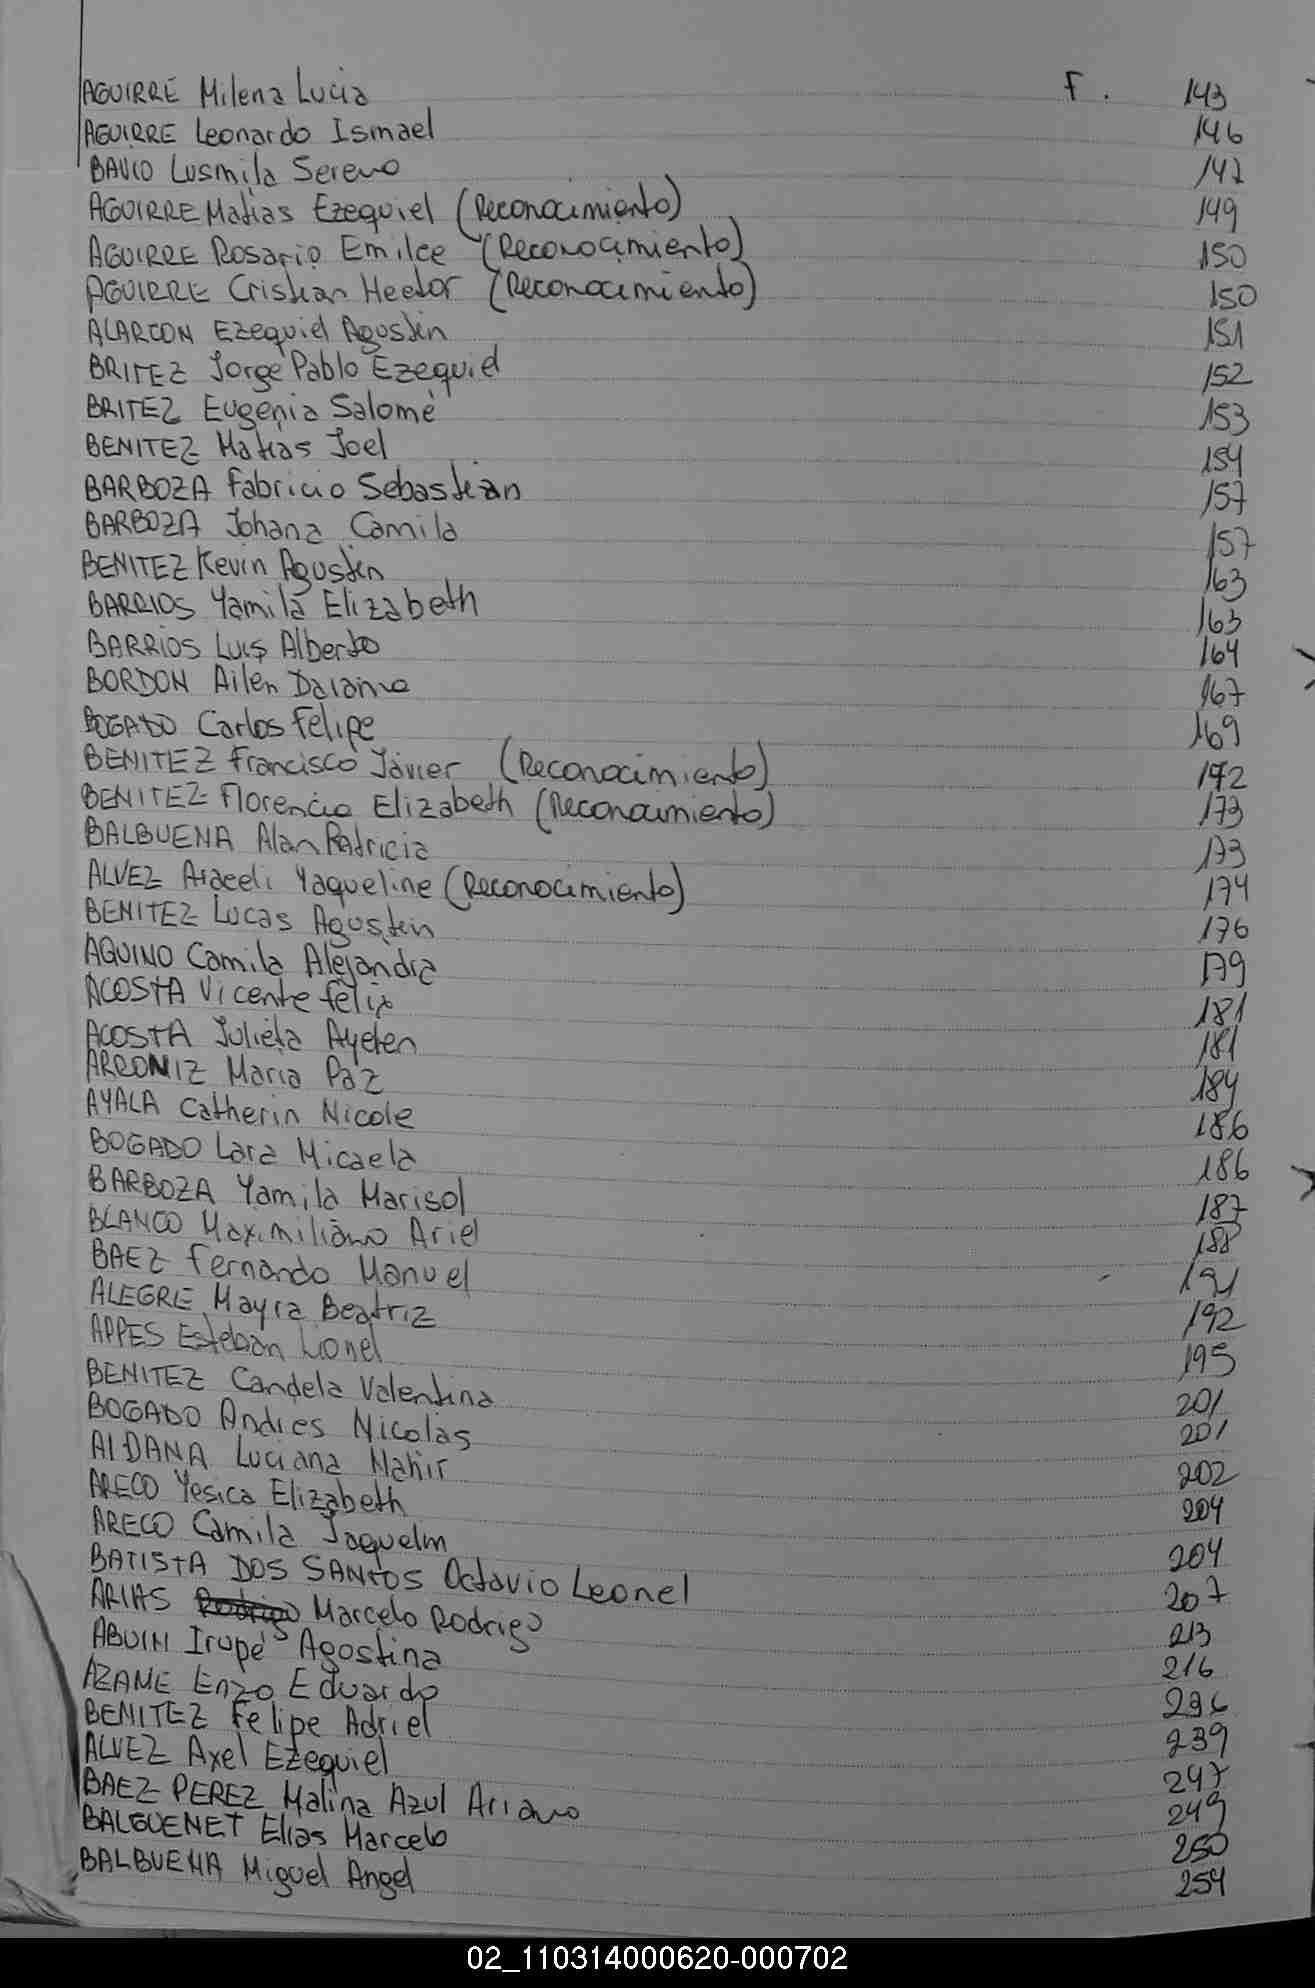 AGUIRRE Milena Lucia F. 143
AGUIRRE Leonardo Ismael 146
Lusmila Sereno 147
AGUIRRE Matias Ezequiel (Reconocimiento) 149
AGUIRRE Rosario Emilce (Reconocimiento) 150
AGUIRRE Cristian Hector (Reconocimiento) 150
ALARCON Ezequiel Agustin 151
BRITEZ Jorge Pablo Ezequiel 152
BRITEZ Eugenia Salomé 153
BENITEZ Matias Joel 154
BARBOZA Fabricio Sebastián 157
BARBOZA Johana Camila 157
BENITEZ Kevin Agustin 163
BARRIOS Yamila Elizabeth 163
BARRIOS Luis Alberto 164
BORDON Ailen Daiana 167
BOGADO Carlos Felipe 169
BENITEZ Francisco Javier (Reconocimiento) 172
BENITEZ Florencia Elizabeth (Reconocimiento) 173
BALBUENA Alan Patricia 173
ALVEZ Araceli Yaqueline (Reconocimiento) 174
BENITEZ Lucas Agustin 176
AQUINO Camila Alejandra 179
ACOSTA Vicente Felix 181
ACOSTA Julieta Ayelen 181
ARRONIZ Maria Paz 184
AYALA Catherin Nicole 186
BOGADO Lara Micaela 186
BARBOZA Yamila Marisol 187
BLANCO Maximiliano Ariel 188
BAEZ Fernando Manuel 191
ALEGRE Mayra Beatriz 192
APPES Esteban Lionel 195
BENITEZ Candela Valentina 201
BOGADO Andres Nicolas 201
ALDANA Luciana Nahir 202
ARECO Yesica Elizabeth 204
ARECO Camila Jaquelin 204
BATISTA DOS SANTOS Octavio Leonel 207
ARIAS Rodrigo Marcelo Rodrigo 213
ABUIN Irupé Agostina 216
AZAME Enzo Eduardo 236
BENITEZ Felipe Adriel 239
ALVEZ Axel Ezequiel 247
BAEZ PEREZ Malina Azul Ariana 249
BALGUENET Elias Marcelo 250
BALBUENA Miguel Angel 254
02_110314000620-000702